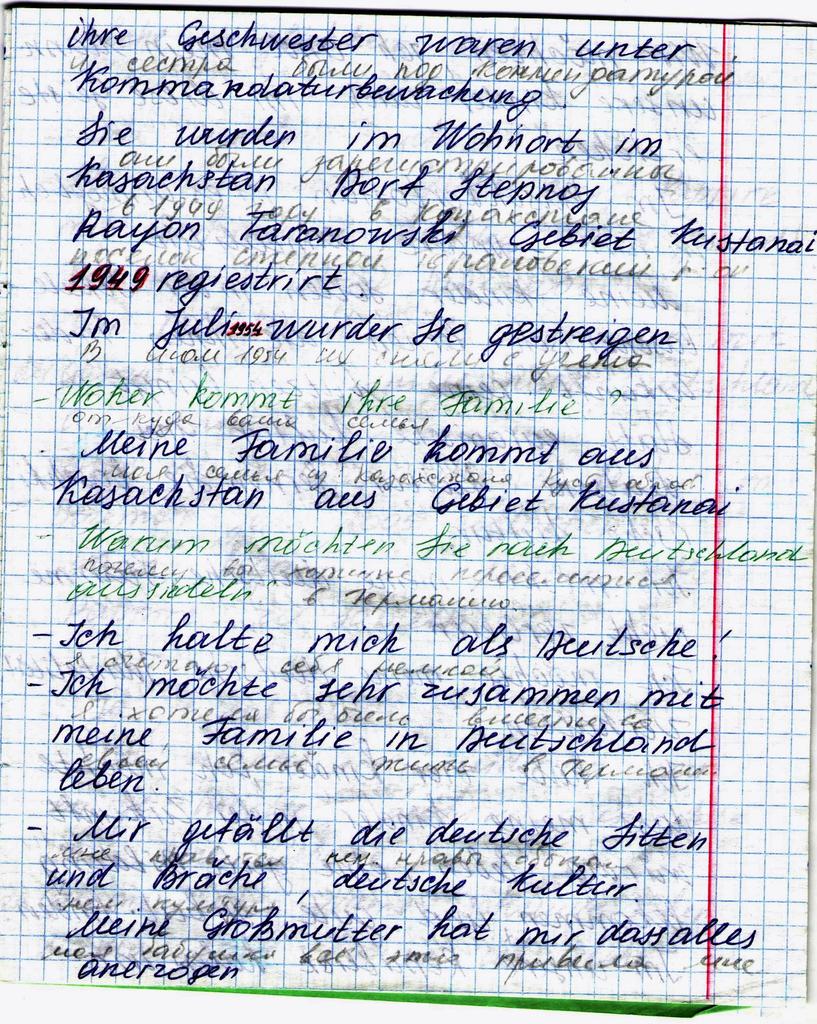 ihre Geschwester waren unter
и сестра были под комендатурой
Kommandaturbewachung.
Sie wurden im Wohnort im
они были зарегистрированы
Kasachstan Dorf Stepnoj
в 1949 году в Казахстане
Rayon Taranowski Gebiet Kustanai
посёлок степной Тарановский р-он
1949 regiestrirt.
Im Juli 1954 wurder Sie gestreigen
В июле 1954 их сняли с учета
- Woher kommt ihre Familie?
от куда ваша семья
. Meine Familie kommt aus
моя семья из Казахстана Куст.
Kasachstan aus Gebiet Kustanai
- Warum möchten Sie nach Deutschland
почему вы хотите переселиться
aussiedeln? в Германию
- Ich halte mich als Deutsche!
я считаю себя немкой
- Ich möchte sehr zusammen mit
я хотела бы вместе со
meine Familie in Deutschland
своей семьёй жить в Германии
leben.
- Mir gefällt die deutsche Sitten
мне нравятся нем. нравы
und Bräche, deutsche Kultur.
нем культура
Meine Großmutter hat mir dass alles
моя бабушка всё это привила мне
anerzogen